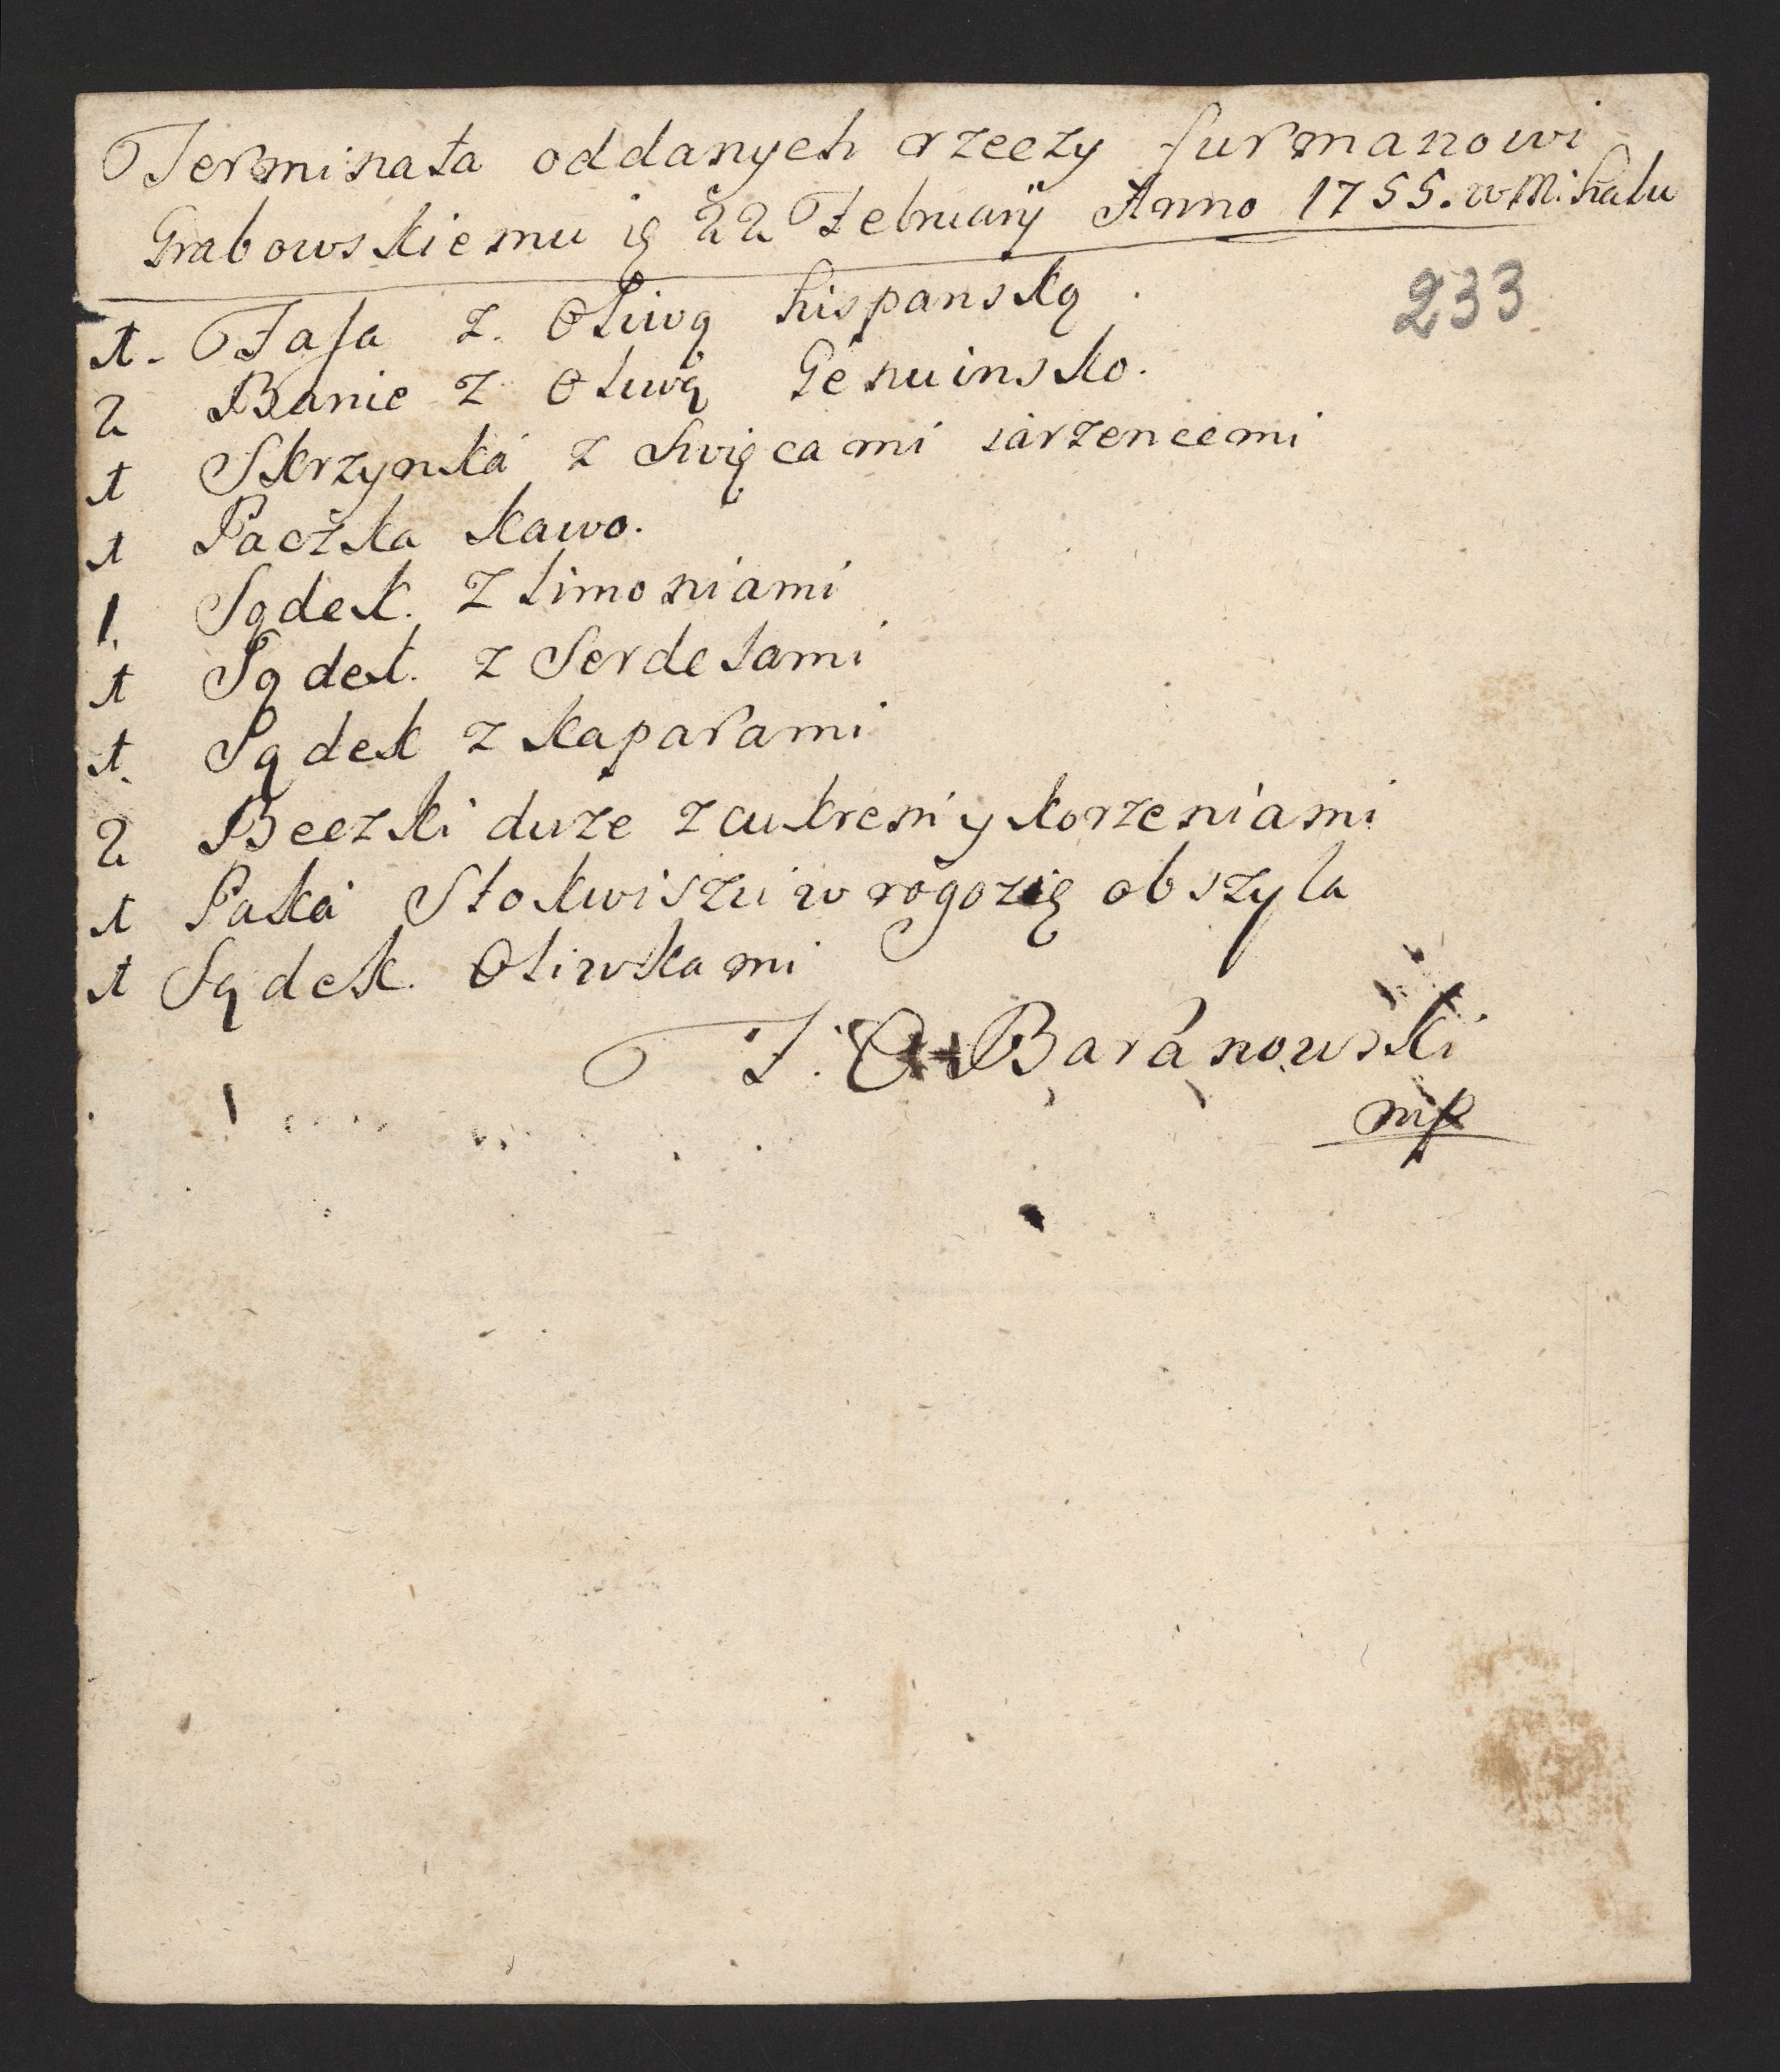 Terminata oddanych rzeczy furmanowi
Grabowskiemu ię 22 February Anno 1755. w
233
1. Fasa z. Oliwą hispanską.
2 Banie z Oliwą Genuinsko.
1 Skrzynká z Swięcami iarzencemi
1 Paczka kawo.
1. Sądek. z limoniami
1 Sądek. z Serdelami
1. Sądek z kaparami
2 Beczki duze z cukrem y korzeniami
1 Paká Stokwiszu w rogozię obszyla
1 Sądek. Oliwkami
F. Baránowski
mp